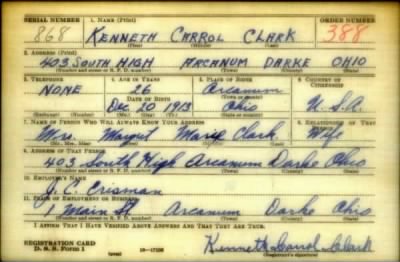 SERIAL NUMBER 1. NAME (Print) ORDER NUMBER
868 KENNETH CARROL CLARK 388
(First) (Middle) (Last)
2. ADDRESS (Print)
403 SOUTH HIGH ARCANUM DARKE OHIO
3. TELEPHONE 4. AGE IN YEARS 5. PLACE OF BIRTH 6. COUNTRY OF CITIZENSHIP
NONE 26 Arcanum
DATE OF BIRTH (Town or county)
Dec 20 1913 Ohio U.S.A.
7. NAME OF PERSON WHO WILL ALWAYS KNOW YOUR ADDRESS 8. RELATIONSHIP OF THAT PERSON
Mrs. Margret Marie Clark Wife
(Mr., Mrs., Miss) (First) (Middle) (Last)
9. ADDRESS OF THAT PERSON
403 South High Arcanum Darke Ohio
10. EMPLOYER'S NAME
J. C. Crisman
11. PLACE OF EMPLOYMENT OR BUSINESS
1 Main St Arcanum Darke Ohio
(Number and street or R. F. D. number) (Town) (County) (State)
I AFFIRM THAT I HAVE VERIFIED ABOVE ANSWERS AND THAT THEY ARE TRUE.
REGISTRATION CARD
D. S. S. Form 1 Kenneth Carrol Clark
(Registrant's signature)